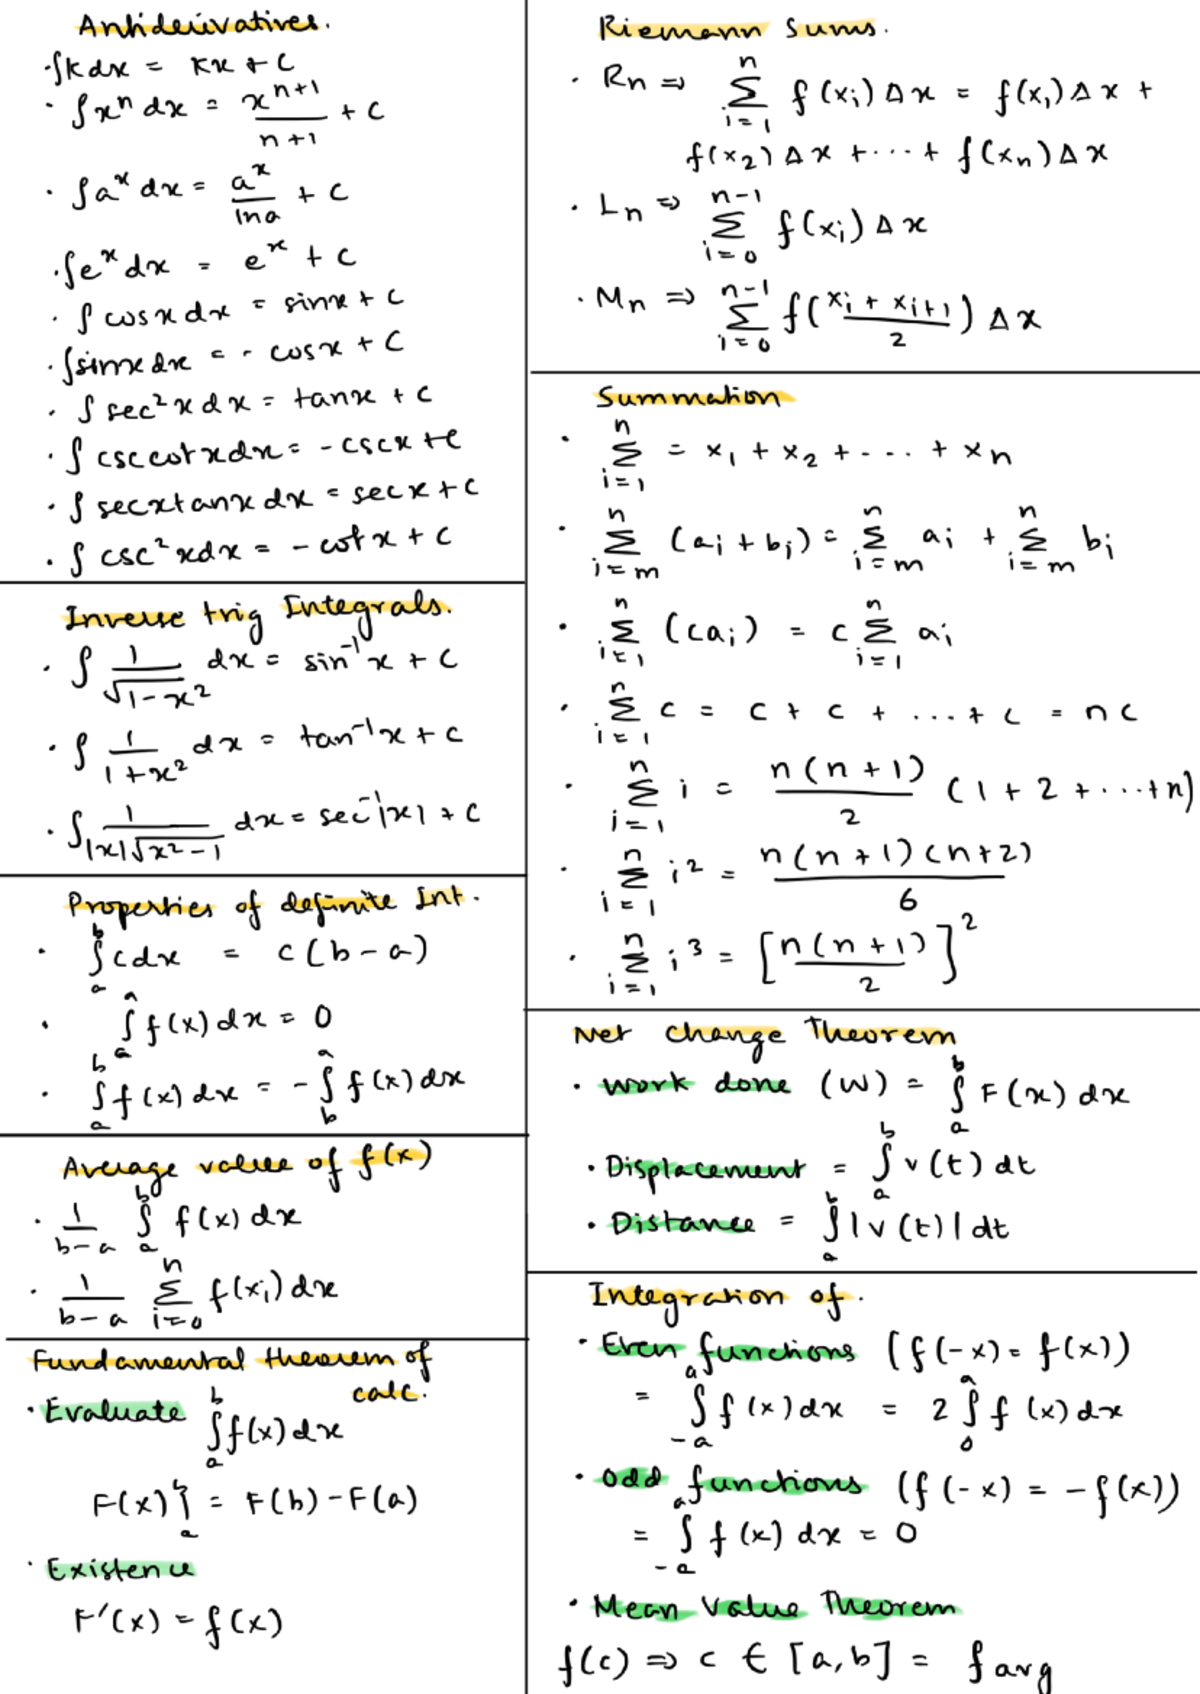 Antiderivatives.
· ∫k dx = kx + C
· ∫xⁿ dx = xⁿ⁺¹/(n+1) + C
· ∫aˣ dx = aˣ/ln a + C
· ∫eˣ dx = eˣ + C
· ∫cos x dx = sin x + C
· ∫sin x dx = - cos x + C
· ∫ sec² x dx = tan x + C
· ∫ csc cot x dx = - csc x + C
· ∫ sec x tan x dx = sec x + C
· ∫ csc² x dx = - cot x + C
Inverse trig Integrals.
· ∫ 1/√(1-x²) dx = sin⁻¹ x + C
· ∫ 1/(1+x²) dx = tan⁻¹ x + C
· ∫ 1/(|x|√(x²-1)) dx = sec⁻¹|x| + C
Properties of definite Int.
· ∫ₐᵇ c dx = c(b-a)
· ∫ₐᵃ f(x) dx = 0
· ∫ₐᵇ f(x) dx = - ∫_b^a f(x) dx
Average value of f(x)
· 1/(b-a) ∫ₐᵇ f(x) dx
· 1/(b-a) Σ_{i=0}^{n} f(xᵢ) dx
Fundamental theorem of
calc.
· Evaluate ∫ₐᵇ f(x) dx
F(x)]ₐᵇ = F(b) - F(a)
· Existence
F'(x) = f(x)
Riemann Sums.
· Rn ⇒ Σ_{i=1}^{n} f(xᵢ) Δx = f(x₁) Δx +
f(x₂) Δx + ... + f(xₙ) Δx
· Ln ⇒ Σ_{i=0}^{n-1} f(xᵢ) Δx
· Mn ⇒ Σ_{i=0}^{n-1} f((xᵢ + xᵢ₊₁)/2) Δx
Summation
· Σ_{i=1}^{n} = x₁ + x₂ + ... + xn
· Σ_{i=m}^{n} (aᵢ + bᵢ) = Σ_{i=m}^{n} aᵢ + Σ_{i=m}^{n} bᵢ
· Σ_{i=1}^{n} (caᵢ) = c Σ_{i=1}^{n} aᵢ
· Σ_{i=1}^{n} c = c + c + ... + c = nc
· Σ_{i=1}^{n} i = n(n+1)/2 (1 + 2 + ... + n)
· Σ_{i=1}^{n} i² = n(n+1)(n+2)/6
· Σ_{i=1}^{n} i³ = [n(n+1)/2]²
Net change Theorem
· Work done (W) = ∫ₐᵇ F(x) dx
· Displacement = ∫ₐᵇ v(t) dt
· Distance = ∫ₐᵇ |v(t)| dt
Integration of.
· Even functions (f(-x) = f(x))
= ∫₋ₐᵃ f(x) dx = 2 ∫₀ᵃ f(x) dx
· Odd functions (f(-x) = -f(x))
= ∫₋ₐᵃ f(x) dx = 0
· Mean Value Theorem
f(c) ⇒ c ∈ [a,b] = f avg